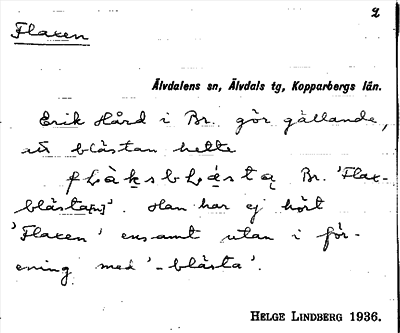 2
Flaxen
Älvdalens sn, Älvdals tg, Kopparbergs län.
Erik Hård i Br. gör gällande,
att blåstan hette
Br. 'Flax-
blåsta[n]'. Han har ej hört
'Flaxen' ensamt utan i för-
ening med '-blåsta'.
HELGE LINDBERG 1936.